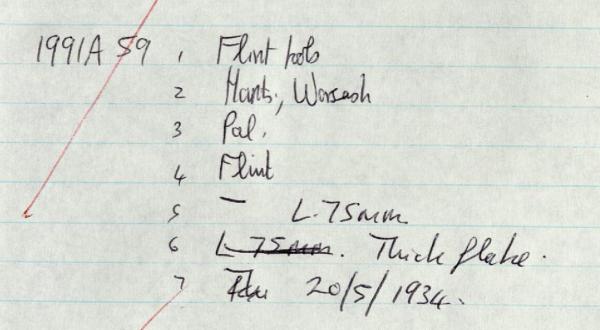 1991A 59 1 Flint tools
2 Hants., Warsash
3 Pal.
4 Flint
5 — L. 75mm
6 L 75mm. Thick flake.
7 20/5/1934.